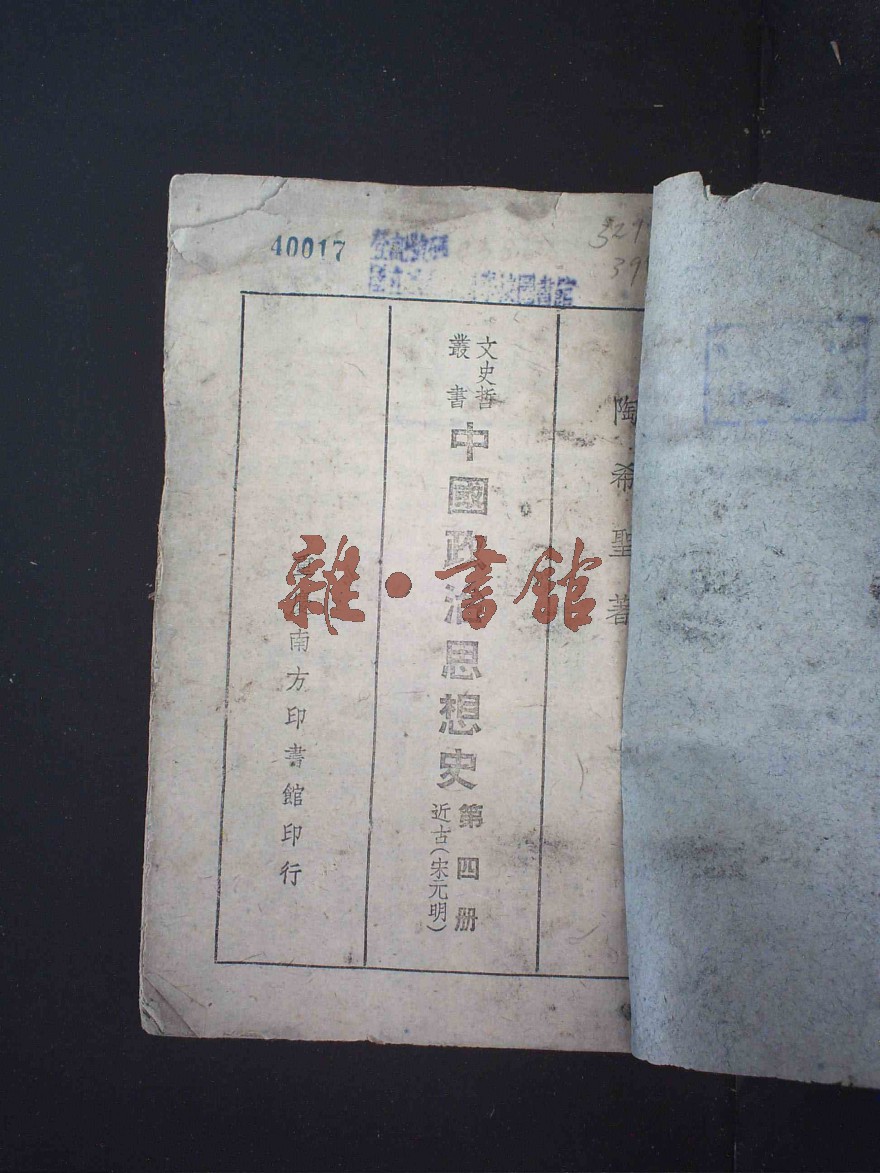 40017
登記號碼
329
39
陶希聖著
文史哲
叢書
中國政治思想史
第四册
近古(宋元明)
南方印書館印行
雜·書館